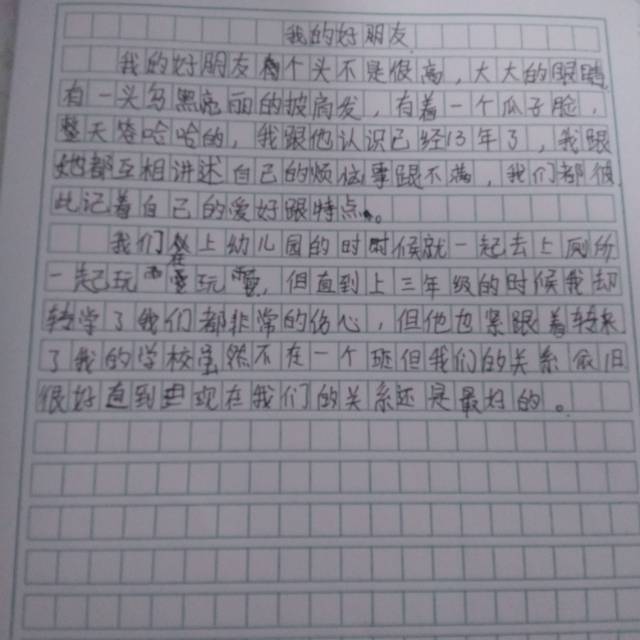 我的好朋友
我的好朋友个头不是很高，大大的眼睛
有一头乌黑亮丽的披肩发，有着一个瓜子脸，
整天哈哈的，我跟他认识已经13年了，我跟
她都互相讲述自己的烦恼事跟不满，我们都彼
此记着自己的爱好跟特点。
我们在上幼儿园的时候就一起去上厕所
一起玩玩，但直到上三年级的时候我却
转学了我们都非常的伤心，但他也紧跟着转来
了我的学校虽然不在一个班但我们的关系依旧
很好直到现在我们的关系还是最好的。